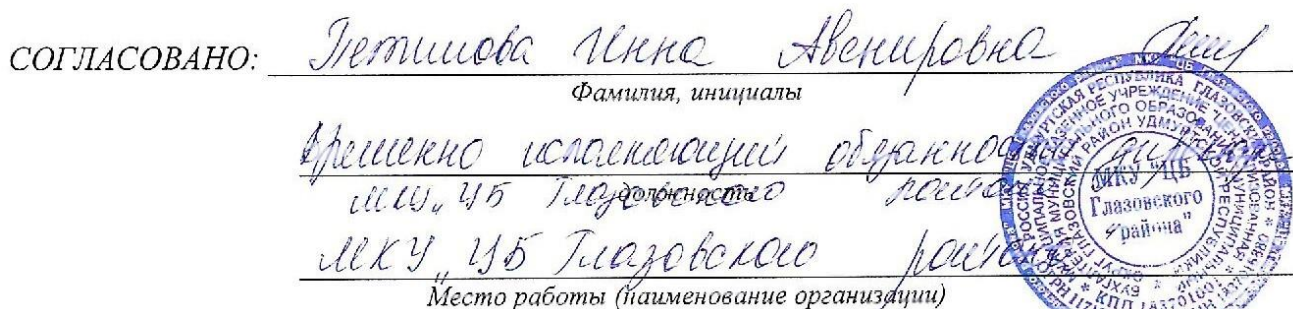 СОГЛАСОВАНО: Петишова Инна Авенировна
Фамилия, инициалы
Временно исполняющий обязанности
должность
МКУ „ЦБ Глазовского района
МКУ „ЦБ Глазовского района
Место работы (наименование организации)
МКУ "ЦБ
Глазовского
района"